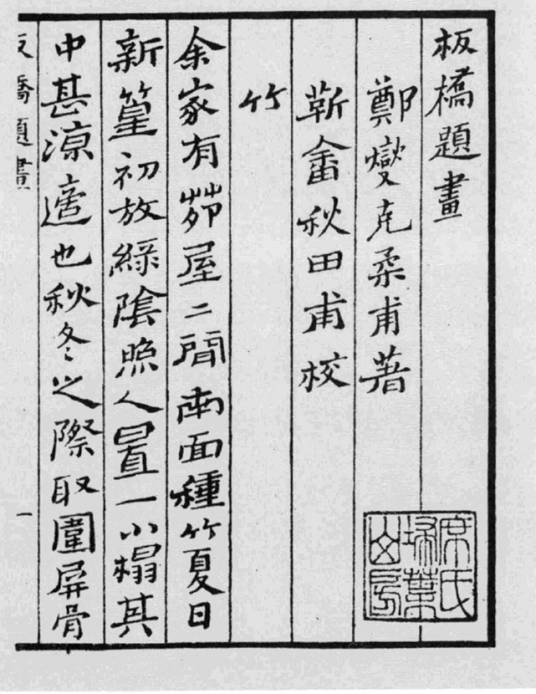 板橋題畫
鄭燮克柔甫著
靳畬秋田甫校
竹
余家有茆屋二間南面種竹夏日
新篁初放綠陰照人置一小榻其
中甚涼適也秋冬之際取圍屏骨
板橋題畫
一
席氏
掃葉
山房